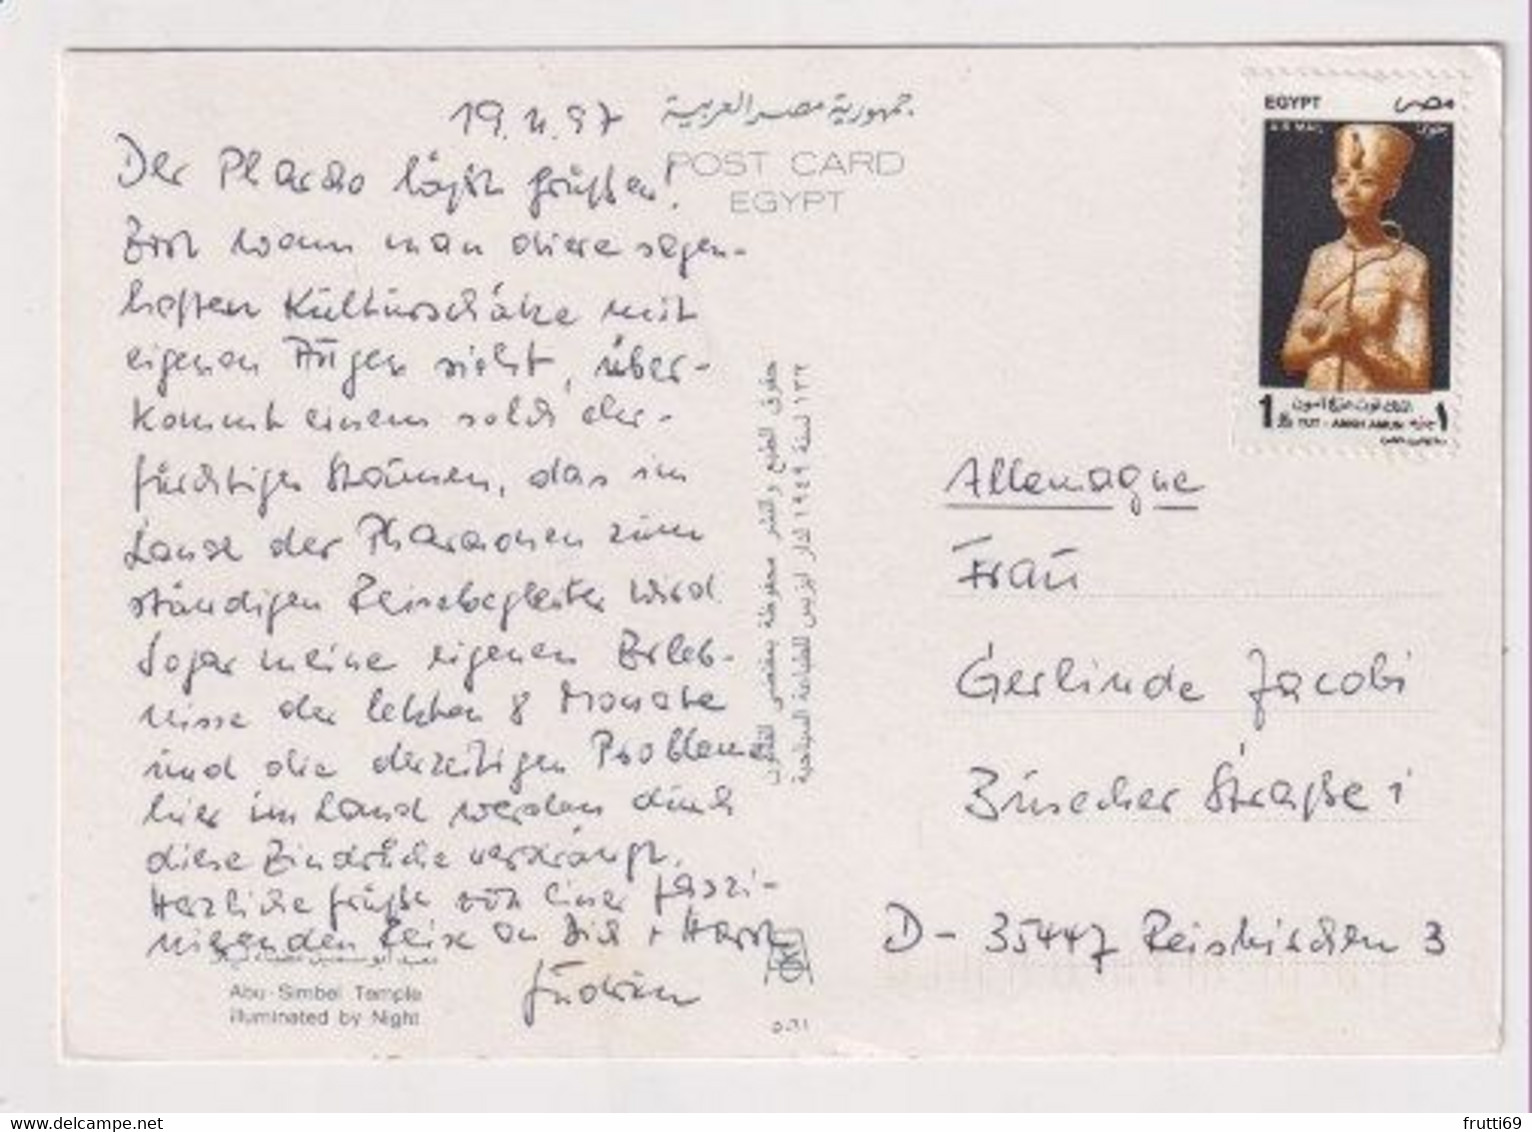 19.11.97
Der Pharao läßt grüßen!
Erst wenn man diese sagen-
haften Kulturschätze mit
eigenen Augen sieht, über-
kommt einem solch ehr-
fürchtiges Staunen, das im
Lande der Pharaonen zum
ständigen Reisebegleiter wird.
Sogar meine eigenen Erleb-
nisse der letzten 8 Monate
und die derzeitigen Probleme
hier im Land werden durch
diese Eindrücke verdrängt.
Herzliche Grüße von einer faszi-
nierenden Reise an Dich +
Abu-Simbel Temple
illuminated by Night
جمهورية مصر العربية
POST CARD
EGYPT
حقوق الطبع والنشر محفوظة بمقتضى القانون
EGYPT مصر
AIR MAIL
1
TUT - ANKH AMUN
Allemagne
Frau
Gerlinde Jacobi
Büsecker Straße 1
D - 35447 Reiskirchen 3
delcampe.net
frutti69